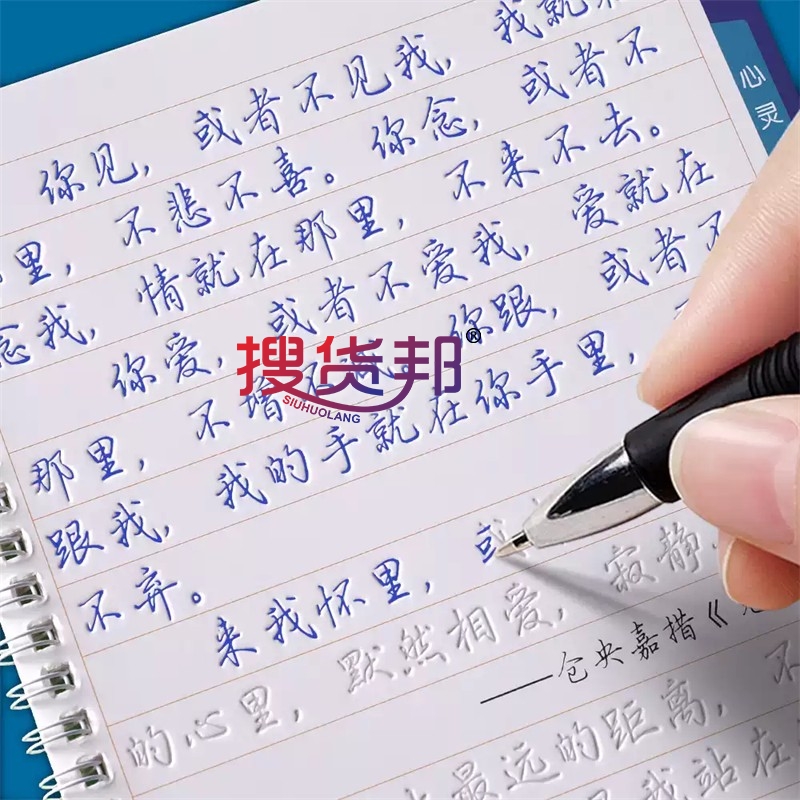 你见，或者不见我，我就
里，不悲不喜。你念，或者不
念我，情就在那里，不来不去。
你爱，或者不爱我，爱就在
那里，不增不 你跟，或者不
跟我，我的手就在你手里，
不弃。
来我怀里，或
的心里，默然相爱，寂静
——仓央嘉措《
最远的距离，不
我站在
心灵
搜货邦®
SIUHUOLANG